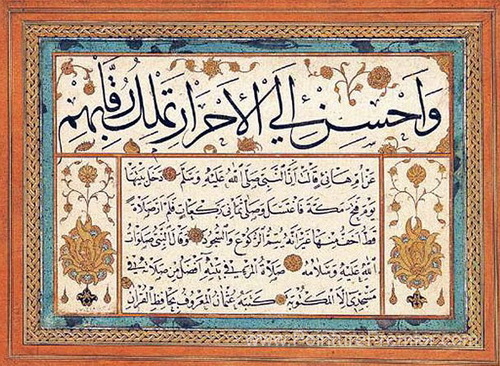 وَاَحْسِنْ اِلَى الْاَحْرَارِ تَمْلِكْ رِقَابَهُمْ
عن ام هانئ قالت ان النبي صلى الله عليه وسلم دخل بيتها
يوم فتح مكة فاغتسل وصلى ثماني ركعات فلم ار صلاة
قط اخف منها غير انه يتم الركوع والسجود وقال النبي صلوات
الله عليه وسلامه صلاة المرء في بيته افضل من صلاته في
مسجدي هذا الا المكتوبة كتبه عثمان المعروف بحافظ القران